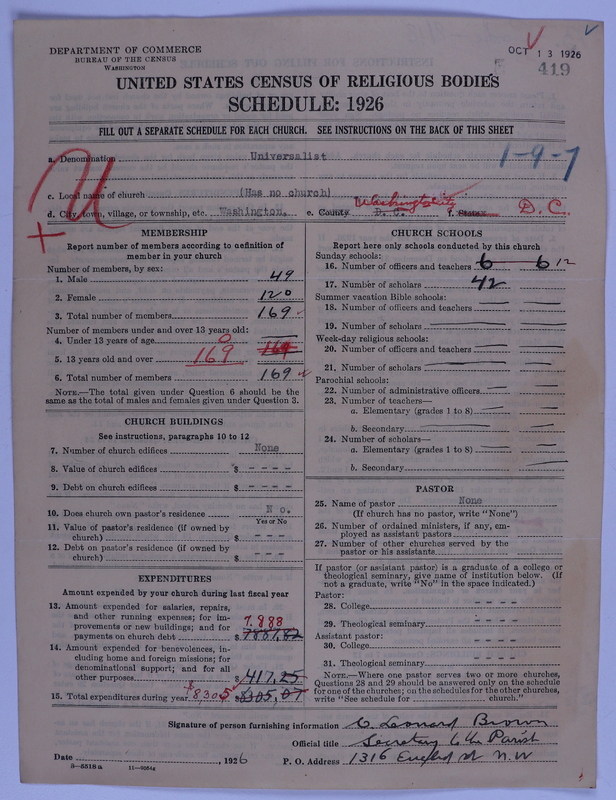 DEPARTMENT OF COMMERCE
BUREAU OF THE CENSUS
WASHINGTON
OCT 13 1926
419
UNITED STATES CENSUS OF RELIGIOUS BODIES
SCHEDULE: 1926
FILL OUT A SEPARATE SCHEDULE FOR EACH CHURCH. SEE INSTRUCTIONS ON THE BACK OF THIS SHEET
a. Denomination Universalist
1-9-7
U
c. Local name of church (Has no church)
Washington City
d. City, town, village, or township, etc. Washington. e. County D. C. f. State D.C.
MEMBERSHIP
Report number of members according to definition of
member in your church
Number of members, by sex:
1. Male 49
2. Female 120
3. Total number of members 169
Number of members under and over 13 years old:
4. Under 13 years of age 0
5. 13 years old and over 169 169
6. Total number of members 169
NOTE.—The total given under Question 6 should be
same as the total of males and females given under Question 3.
CHURCH BUILDINGS
See instructions, paragraphs 10 to 12
7. Number of church edifices None
8. Value of church edifices $ - - - -
9. Debt on church edifices $ - - - -
10. Does church own pastor's residence No.
Yes or No
11. Value of pastor's residence (if owned by
church) $ - - -
12. Debt on pastor's residence (if owned by
church) $ - - -
EXPENDITURES
Amount expended by your church during last fiscal year
13. Amount expended for salaries, repairs,
and other running expenses; for im-
provements or new buildings; and for
payments on church debt $ 7887,82
7.888
14. Amount expended for benevolences, in-
cluding home and foreign missions; for
denominational support; and for all
other purposes $417,25
15. Total expenditures during year $8305 $8305,07
CHURCH SCHOOLS
Report here only schools conducted by this church
Sunday schools:
16. Number of officers and teachers 6 6 12
17. Number of scholars 42
Summer vacation Bible schools:
18. Number of officers and teachers
19. Number of scholars
Week-day religious schools:
20. Number of officers and teachers
21. Number of scholars
Parochial schools:
22. Number of administrative officers
23. Number of teachers—
a. Elementary (grades 1 to 8)
b. Secondary
24. Number of scholars—
a. Elementary (grades 1 to 8)
b. Secondary
PASTOR
25. Name of pastor None
(If church has no pastor, write "None")
26. Number of ordained ministers, if any, em-
ployed as assistant pastors
27. Number of other churches served by the
pastor or his assistants
If pastor (or assistant pastor) is a graduate of a college or
theological seminary, give name of institution below. (If
not a graduate, write "No" in the space indicated.)
Pastor:
28. College - - - -
29. Theological seminary - - - -
Assistant pastor:
30. College - - - -
31. Theological seminary - - - -
NOTE.—Where one pastor serves two or more churches,
Questions 28 and 29 should be answered only on the schedule
for one of the churches; on the schedules for the other churches,
write "See schedule for church."
Signature of person furnishing information C. Leonard Brown
Official title Secretary to the Parish
Date , 1926 P. O. Address 1316 Euclid St N.W
3—5518 a